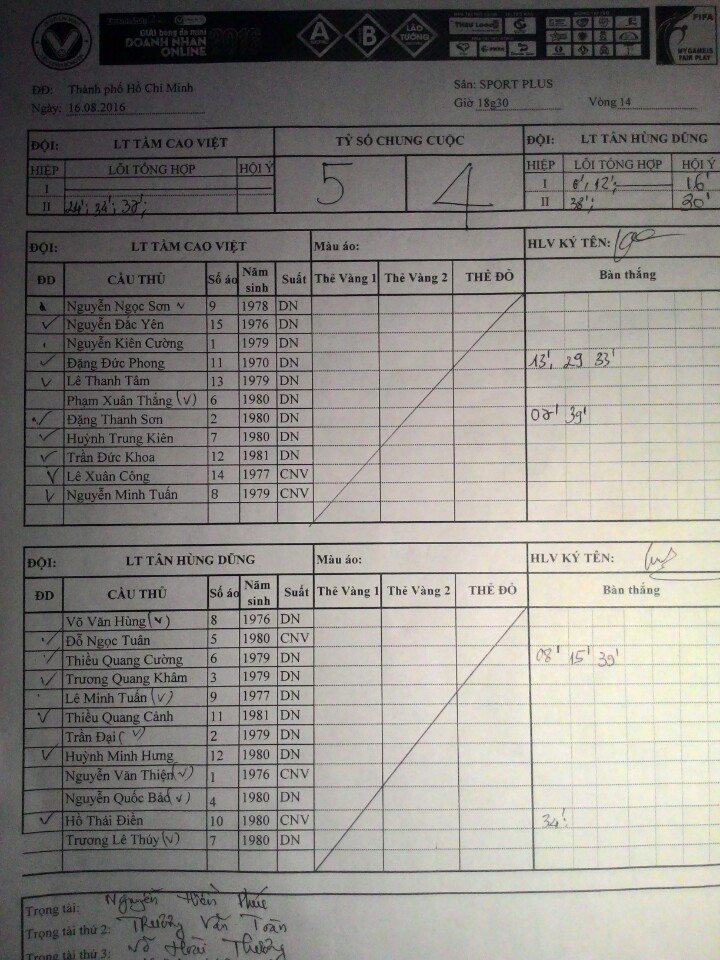 GIẢI bóng đá mini
DOANH NHÂN 2016
ONLINE
A
B
LÃO TƯỚNG
FIFA
MY GAME IS
FAIR PLAY
ĐĐ: Thành phố Hồ Chí Minh Sân: SPORT PLUS
Ngày: 16.08.2016 Giờ 18g30 Vòng 14
ĐỘI: LT TÂM CAO VIỆT TỶ SỐ CHUNG CUỘC ĐỘI: LT TÂN HÙNG DŨNG
HIỆP LỖI TỔNG HỢP HỘI Ý 5 4 HIỆP LỖI TỔNG HỢP HỘI Ý
I I 12'; 16'
II 24'; II 38'; 20'
ĐỘI: LT TÂM CAO VIỆT Màu áo: HLV KÝ TÊN:
ĐD CẦU THỦ Số áo Năm sinh Suất Thẻ Vàng 1 Thẻ Vàng 2 THẺ ĐỎ Bàn thắng
Nguyễn Ngọc Sơn 9 1978 DN
Nguyễn Đắc Yên 15 1976 DN
Nguyễn Kiên Cường 1 1979 DN
Đặng Đức Phong 11 1970 DN 13', 29 33'
Lê Thanh Tâm 13 1979 DN
Phạm Xuân Thắng (v) 6 1980 DN
Đặng Thanh Sơn 2 1980 DN 39'
Huỳnh Trung Kiên 7 1980 DN
Trần Đức Khoa 12 1981 DN
Lê Xuân Công 14 1977 CNV
Nguyễn Minh Tuấn 8 1979 CNV
ĐỘI: LT TÂN HÙNG DŨNG Màu áo: HLV KÝ TÊN:
ĐD CẦU THỦ Số áo Năm sinh Suất Thẻ Vàng 1 Thẻ Vàng 2 THẺ ĐỎ Bàn thắng
Võ Văn Hùng (v) 8 1976 DN
Đỗ Ngọc Tuân 5 1980 CNV
Thiều Quang Cường 6 1979 DN 08' 15' 39'
Trương Quang Khâm 3 1979 DN
Lê Minh Tuấn (v) 9 1977 DN
Thiều Quang Cảnh 11 1981 DN
Trần Đại (v) 2 1979 DN
Huỳnh Minh Hưng 12 1980 DN
Nguyễn Văn Thiện (v) 1 1976 CNV
Nguyễn Quốc Bảo (v) 4 1980 DN
Hồ Thái Điền 10 1980 CNV 34'
Trương Lê Thủy (v) 7 1980 DN
Trọng tài: Nguyễn
Trọng tài thứ 2: Trương Văn Toàn
Trọng tài thứ 3: Võ Hoài Thương